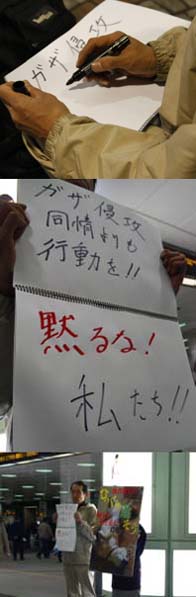 ガザ侵攻
ガザ侵攻
同情よりも
行動を!!
黙るな!
私たち!!